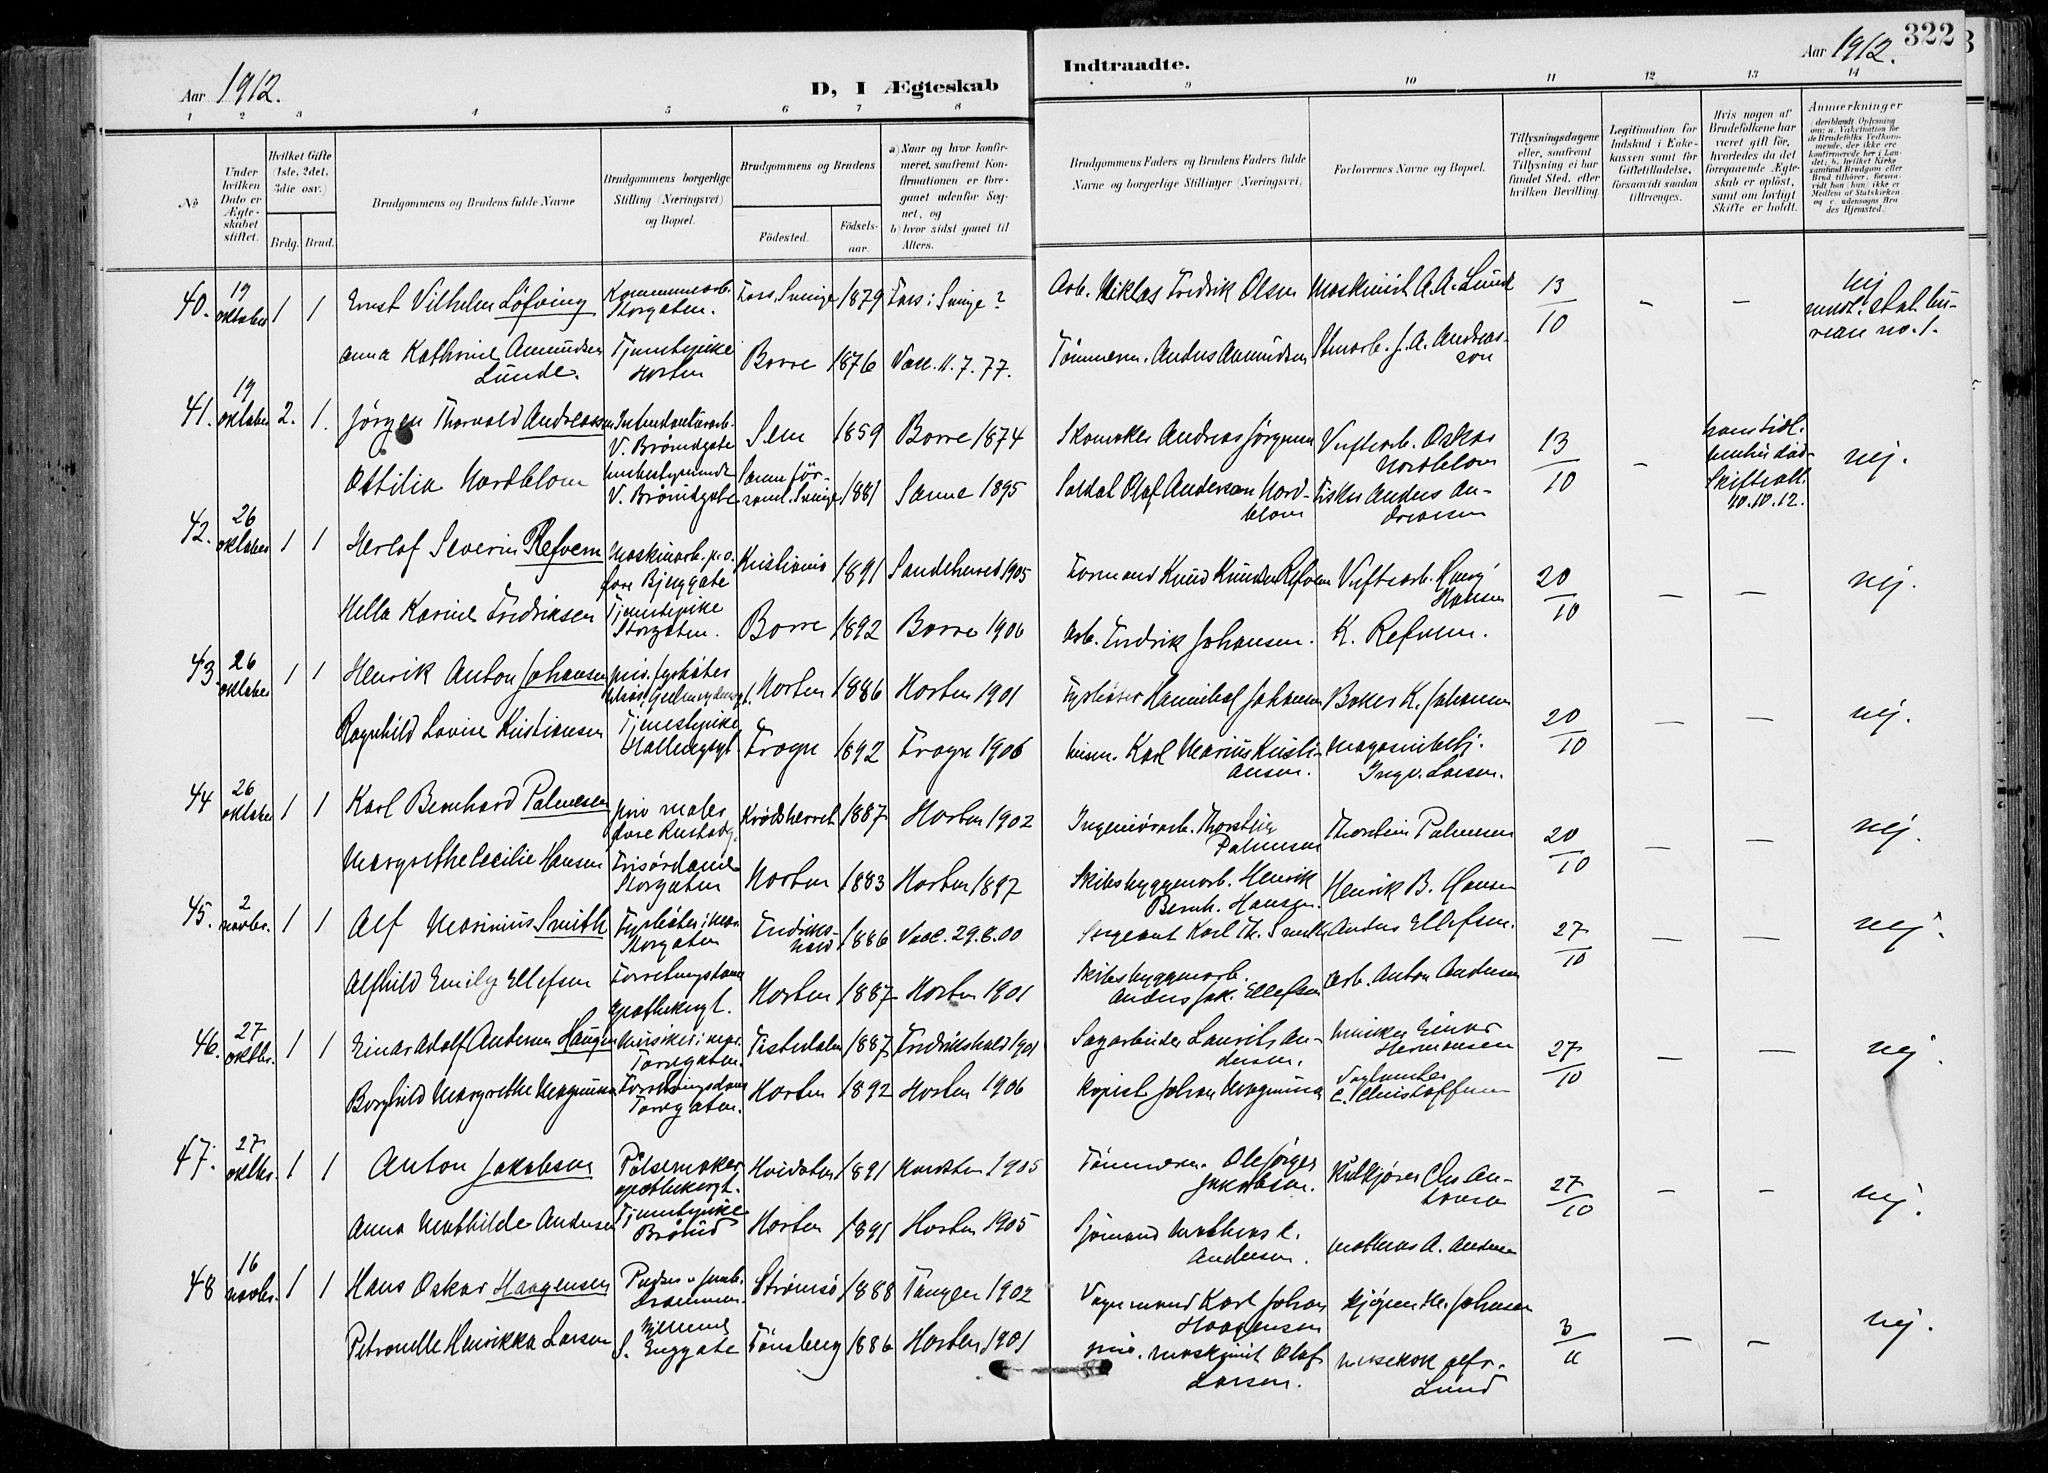 Aar 1912.
D, I Ægteskab
Indtraadte.
Aar 1912.
322
1 2 3 4 5 6 7 8 9 10 11 12 13 14
No
Under hvilken Dato er Ægteskabet stiftet.
Hvilket Gifte (1ste, 2det, 3die osv.)
Brdg. Brud.
Brudgommens og Brudens fulde Navne
Brudgommens borgerlige Stilling (Næringsvei) og Bopæl.
Brudgommens og Brudens
Fødested.
Fødselsaar.
a) Naar og hvor konfirmeret, saafremt Konfirmationen er foregaaet udenfor Sognet, og
b) hvor sidst gaaet til Alters.
Brudgommens Faders og Brudens Faders fulde Navne og borgerlige Stillinger (Næringsvei).
Forlovernes Navne og Bopæl.
Tillysningsdagene eller, saafremt Tillysning ei har fundet Sted, efter hvilken Bevilling.
Legitimation for Indskud i Enkekassen samt for Giftetilladelse, forsaavidt saadan tiltrænges.
Hvis nogen af Brudefolkene har været gift før, hvorledes da det foregaaende Ægteskab er opløst, samt om lovligt Skifte er holdt.
Anmerkninger
40. 19 oktober 1 1 Ernst Vilhelm Löfving Kommunearb. Storgaten. Fors, Sverige 1879 Fors i Sverige? Arb. Niklas Fredrik Olsen Maskinist A. A. Lund 13/10 – – nej
Anna Kathrine Amundsen Lunde. Tjenestepike Horten Borre 1876 Vacc. 11.7.77. Tømmerm. Anders Amundsen Stenarb. J. A. Andreasson
41. 19 oktober 2. 1. Jørgen Thorvald Andreassen Intendanturarb. V. Brårudgate Sem 1859 Borre 1874 Skomaker Andreas Jørgensen Verftsarb. Oskar Nordblom 13/10 – Skifteatt. 10.10.12. nej.
Ottilia Nordblom V. Brårudgate Sanne 1881 Sanne 1895 Soldat Olaf Anderson Nordblom Fisker Anders Andreasen
42. 26 oktober 1 1 Herlof Severin Refvem Maskinarb. Kristiania 1891 Sandeherred 1905 Formand Knud Knudsen Refvem Verftsarb. Hansen 20/10 – – nej.
Hella Karine Fredriksen Tjenestepike Storgaten. Borre 1892 Borre 1906 Arb. Fredrik Johansen. K. Refvem.
43. 26 oktober 1 1 Henrik Anton Johansen Horten 1886 Horten 1901 Fyrbøter Hannibal Johansen Baker K. Johansen 20/10 – – nej.
Ragnhild Lovise Kristiansen Tjenestepike Frogn 1892 Frogn 1906 Karl Marius Kristiansen. Ingv. Larsen.
44 26 oktober 1 1 Karl Bernhard Palmesen maler Krødsherret 1887 Horten 1902 Ingeniørarb. Thorstein Palmesen Thorstein Palmesen 20/10 – – nej.
Margrethe Cecilie Hansen Frisørdame Storgaten Horten 1883 Horten 1897 Skibsbyggerarb. Henrik Bernh. Hansen. Henrik B. Hansen
45. 2 novbr. 1 1 Alf Marinius Smith Fyrbøter i mar. Storgaten Fredrikshald 1886 Vacc. 29.6.00 Sergeant Karl Th. Smith Anders Ellefsen. 27/10 – – nej.
Alfhild Emily Ellefsen Apothekergt. Horten 1887 Horten 1901 Skibsbyggerarb. Anders Jak. Ellefsen Arb. Anton Andersen
46. 27 oktbr. 1 1 Einar Adolf Andersen Haugen Musiker i mar. Torvegaten. Tistedalen 1887 Fredrikshald 1901 Sagarbeider Laurits Andersen. Musiker Einar Hermansen 27/10 – – nej.
Borghild Margrethe Magnussen Forretningsdame Torvegaten. Horten 1892 Horten 1906 Kopist Johan Magnussen C. Christoffersen
47. 27 oktbr. 1 1 Anton Jakobsen Pølsemaker Apothekergt. Hvidsten 1891 Hvidsten 1905 Tømmerm. Ole Jørgen Jakobsen. Kulkjører Chr. Antonsen 27/10 – – nej.
Anna Mathilde Andersen Tjenestepike Brårud Horten 1891 Horten 1905 Sjømand Mathias C. Andersen. Mathias A. Andersen
48 16 novbr. 1 1 Hans Oskar Haagensen Drammen. Strømsø 1888 Tangen 1902 Vognmand Karl Johan Haagensen Johansen 3/11 – – nej.
Petronelle Henrikka Larsen Hjemme S. Enggate Tønsberg 1886 Horten 1901 Maskinist Olaf Larsen. Messekok Alfr. Lund